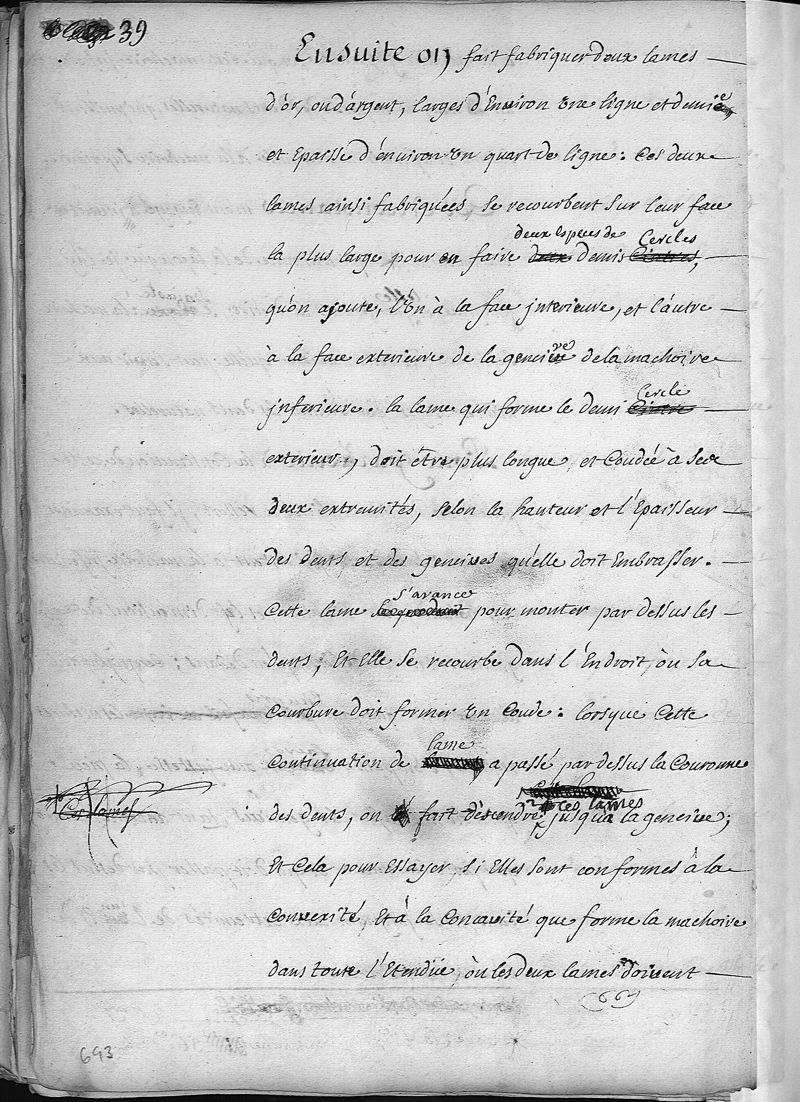 39
Ensuite on fait fabriquer deux lames
d'or, ou d'argent, larges d'Environ une ligne et demie
et Epaisse d'environ un quart de ligne : Ces deux
lames ainsi fabriquées se recourbent sur leur face
deux Especes de Cercles
la plus large pour en faire deux demis Cintres,
qu'on ajoute, l'un à la face jnterieure, et l'autre
à la face exterieure de la gencive de la machoire
Cercle
jnferieure. la lame qui forme le demi Cintre
exterieur, doit être plus longue et Coudée à ses
deux extremités, selon la hauteur et l'Epaisseur
des dents et des gencives qu'elle doit Embrasser.
s'avance
Cette lame se produit pour monter par dessus les
dents, Et Elle se recourbe dans l'Endroit, où sa
Courbure doit former un Coude : lorsque Cette
lame
Continuation de a passé par dessus la Couronne
ces lames
Ces lames
des dents, on fait descendre jusqu'a la gencive ;
Et Cela pour Essayer, si Elles sont conformes à la
Convexité, Et à la Concavité que forme la machoire
dans toute l'Etendüe, où les deux lames doivent
693